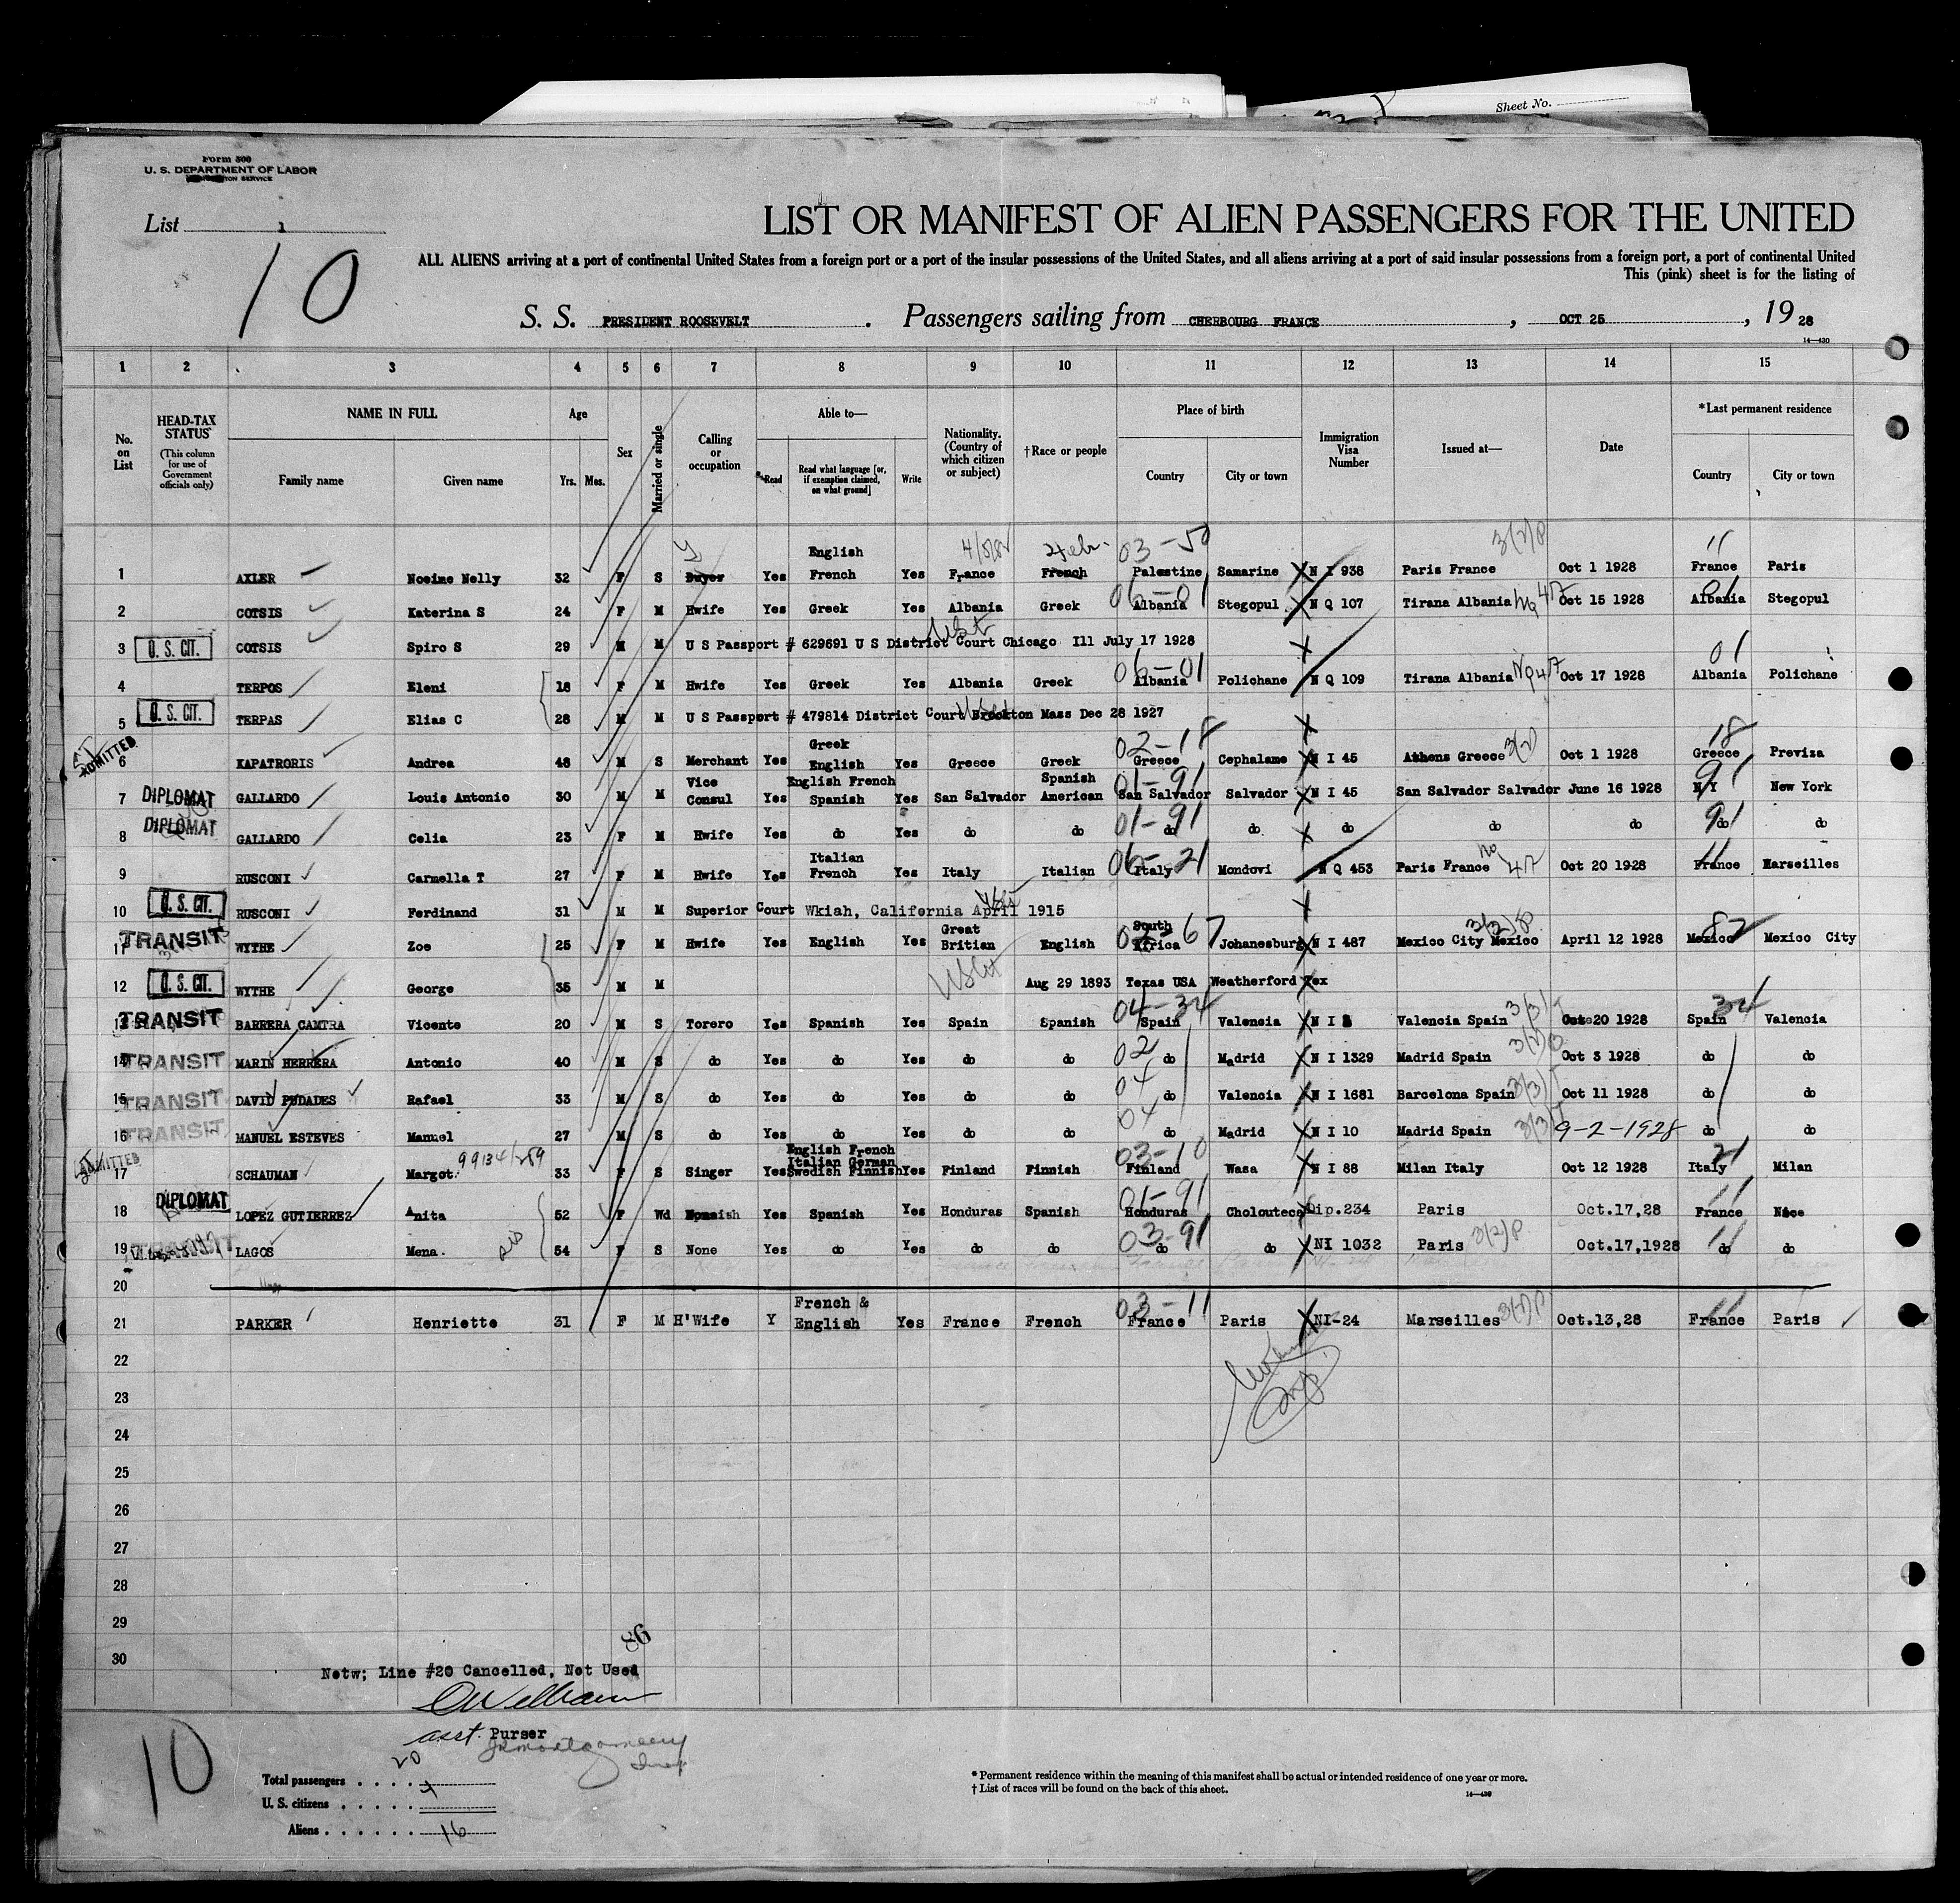 Sheet No.
Form 500
U. S. DEPARTMENT OF LABOR
List 1
10
LIST OR MANIFEST OF ALIEN PASSENGERS FOR THE UNITED
ALL ALIENS arriving at a port of continental United States from a foreign port or a port of the insular possessions of the United States, and all aliens arriving at a port of said insular possessions from a foreign port, a port of continental United
This (pink) sheet is for the listing of
S. S. PRESIDENT ROOSEVELT . Passengers sailing from CHERBOURG FRANCE , OCT 25 , 19 28
14—430
1 2 3 4 5 6 7 8 9 10 11 12 13 14 15
No. on List
HEAD-TAX STATUS (This column for use of Government officials only)
NAME IN FULL
Family name Given name
Age
Yrs. Mos.
Sex
Married or single
Calling or occupation
Able to—
Read Read what language [or, if exemption claimed, on what ground] Write
Nationality. (Country of which citizen or subject)
†Race or people
Place of birth
Country City or town
Immigration Visa Number
Issued at—
Date
*Last permanent residence
Country City or town
03-50 11
1 AXLER Noeime Nelly 32 F S Buyer Yes English French Yes France French Palestine Samarine N I 938 Paris France Oct 1 1928 France Paris
06-01 01
2 COTSIS Katerina S 24 F M Hwife Yes Greek Yes Albania Greek Albania Stegopul N Q 107 Tirana Albania Oct 15 1928 Albania Stegopul
3 U. S. CIT. COTSIS Spiro S 29 M M U S Passport # 629691 U S District Court Chicago Ill July 17 1928
06-01 01
4 TERPOS Eleni 18 F M Hwife Yes Greek Yes Albania Greek Albania Polichane N Q 109 Tirana Albania Oct 17 1928 Albania Polichane
5 U. S. CIT. TERPAS Elias C 28 M M U S Passport # 479814 District Court Brockton Mass Dec 28 1927
ADMITTED
02-18 18
6 KAPATRORIS Andrea 48 M S Merchant Yes Greek English Yes Greece Greek Greece Cephalame N I 45 Athens Greece Oct 1 1928 Greece Previza
01-91 91
7 DIPLOMAT GALLARDO Louis Antonio 30 M M Vice Consul Yes English French Spanish Yes San Salvador Spanish American San Salvador Salvador N I 45 San Salvador Salvador June 16 1928 N Y New York
01-91 91
8 DIPLOMAT GALLARDO Celia 23 F M Hwife Yes do Yes do do do do do do do do do
06-21 11
9 RUSCONI Carmella T 27 F M Hwife Yes Italian French Yes Italy Italian Italy Mondovi N Q 453 Paris France Oct 20 1928 France Marseilles
10 U. S. CIT. RUSCONI Ferdinand 31 M M Superior Court Wkiah, California April 1915
67 82
11 TRANSIT WYTHE Zoe 25 F M Hwife Yes English Yes Great Britian English South Africa Johanesburg N I 487 Mexico City Mexico April 12 1928 Mexico Mexico City
12 U. S. CIT. WYTHE George 35 M M Aug 29 1893 Texas USA Weatherford Tex
04-34 34
13 TRANSIT BARRERA CAMTRA Vicente 20 M S Torero Yes Spanish Yes Spain Spanish Spain Valencia N I Valencia Spain 20 1928 Spain Valencia
02
14 TRANSIT MARIN HERRERA Antonio 40 M S do Yes do Yes do do do Madrid N I 1329 Madrid Spain Oct 3 1928 do do
04
15 TRANSIT DAVID PUDADES Rafael 33 M S do Yes do Yes do do do Valencia N I 1681 Barcelona Spain Oct 11 1928 do do
04
16 TRANSIT MANUEL ESTEVES Manuel 27 M S do Yes do Yes do do do Madrid N I 10 Madrid Spain 9-2-1928 do do
ADMITTED 99134/289
03-10 21
17 SCHAUMAN Margot 33 F S Singer Yes English French Italian German Swedish Finnish Yes Finland Finnish Finland Wasa N I 88 Milan Italy Oct 12 1928 Italy Milan
01-91 11
18 DIPLOMAT LOPEZ GUTIERREZ Anita 52 F Wd Yes Spanish Yes Honduras Spanish Honduras Cholouteca Dip.234 Paris Oct.17,28 France Nice
03-91 11
19 LAGOS Mena. sis 54 F S None Yes do Yes do do do do NI 1032 Paris Oct.17,1928 do do
20
03-11 11
21 PARKER Henriette 31 F M H'Wife Y French & English Yes France French France Paris NI-24 Marseilles Oct.13,28 France Paris
22
23
24
25
26
27
28
29
30
86
Notw; Line #20 Cancelled, Not Used
asst. Purser
10
Total passengers . . . . 20
U. S. citizens . . . . . 4
Aliens . . . . . . 16
* Permanent residence within the meaning of this manifest shall be actual or intended residence of one year or more.
† List of races will be found on the back of this sheet.
14—430